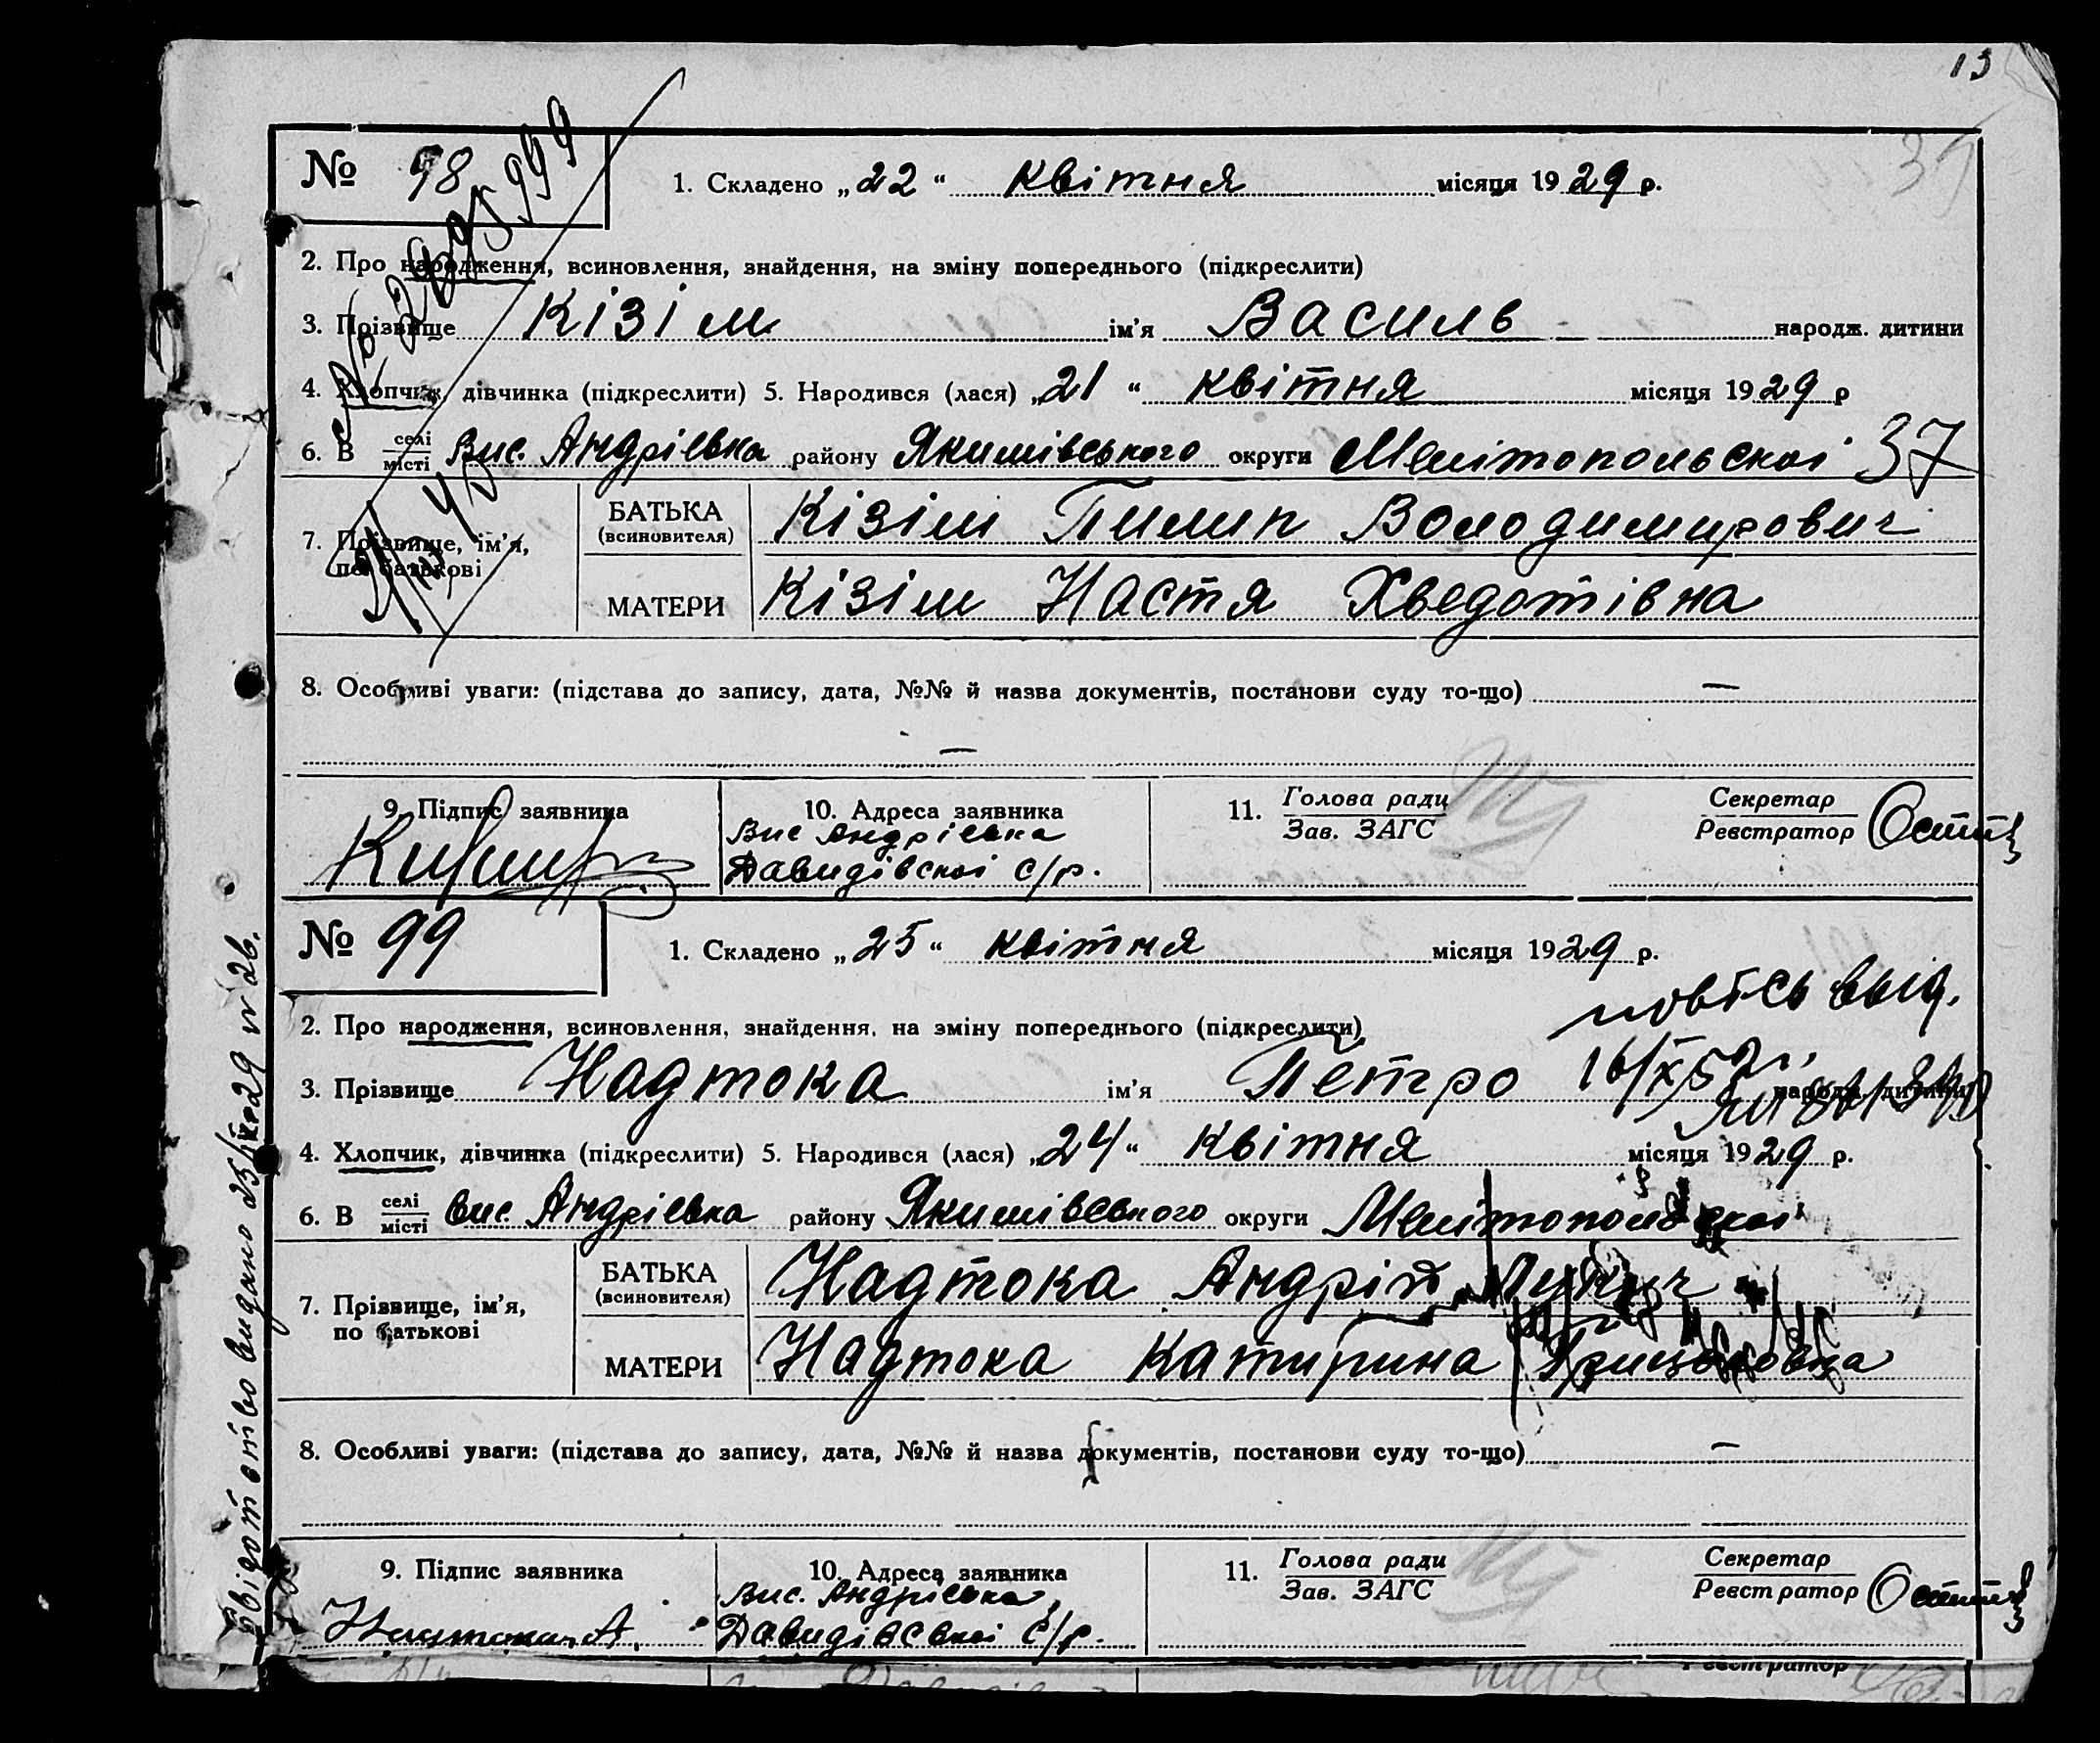 13
39
№ 98
1. Складено „22“ квітня місяця 1929 р.
2. Про народження, всиновлення, знайдення, на зміну попереднього (підкреслити)
3. Прізвище Кізім ім'я Василь народж. дитини
4. Хлопчик, дівчинка (підкреслити) 5. Народився (лася) „21“ квітня місяця 1929 р
6. В селі місті Вис. Андрієвка району Якимівського округи Мелітопольскоі 37
7. Прізвище, ім'я, по батькові
БАТЬКА (всиновителя) Кізім Пилип Володимирович
МАТЕРИ Кізім Настя Хведотівна
8. Особливі уваги: (підстава до запису, дата, №№ й назва документів, постанови суду то-що) —
—
9. Підпис заявника
10. Адреса заявника
Вис Андрієвка
Давидівскоі с/р.
11. Голова ради
Зав. ЗАГС
Секретар
Реєстратор
№ 99
1. Складено „25“ квітня місяця 1929 р.
2. Про народження, всиновлення, знайдення, на зміну попереднього (підкреслити)
3. Прізвище Надтока ім'я Петро народж. дитини
16/X 52 г.
4. Хлопчик, дівчинка (підкреслити) 5. Народився (лася) „24“ квітня місяця 1929 р.
6. В селі місті вис. Андрієвка району Якимівського округи Мелітопольскоі
7. Прізвище, ім'я, по батькові
БАТЬКА (всиновителя) Надтока Андрій Лукич
МАТЕРИ Надтока Катирина
8. Особливі уваги: (підстава до запису, дата, №№ й назва документів, постанови суду то-що) —
9. Підпис заявника
Надтока А.
10. Адреса заявника
Вис. Андрієвка,
Давидівськоі с/р.
11. Голова ради
Зав. ЗАГС
Секретар
Реєстратор
Реєстратор
Свідотство видано